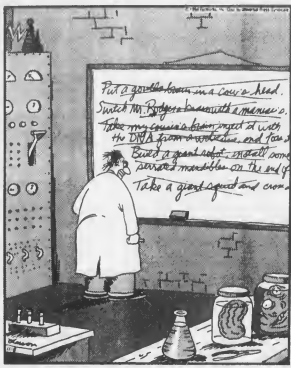 Put a gorilla's brain in a cow's head.
Switch Mr. Rodgers's brain with a maniac's.
Take my cousin's brain, inject it with
the DNA from a wolverine, and
Build a giant robot, install some
serrated mandibles on the end of
Take a giant squid and cram a
Larson